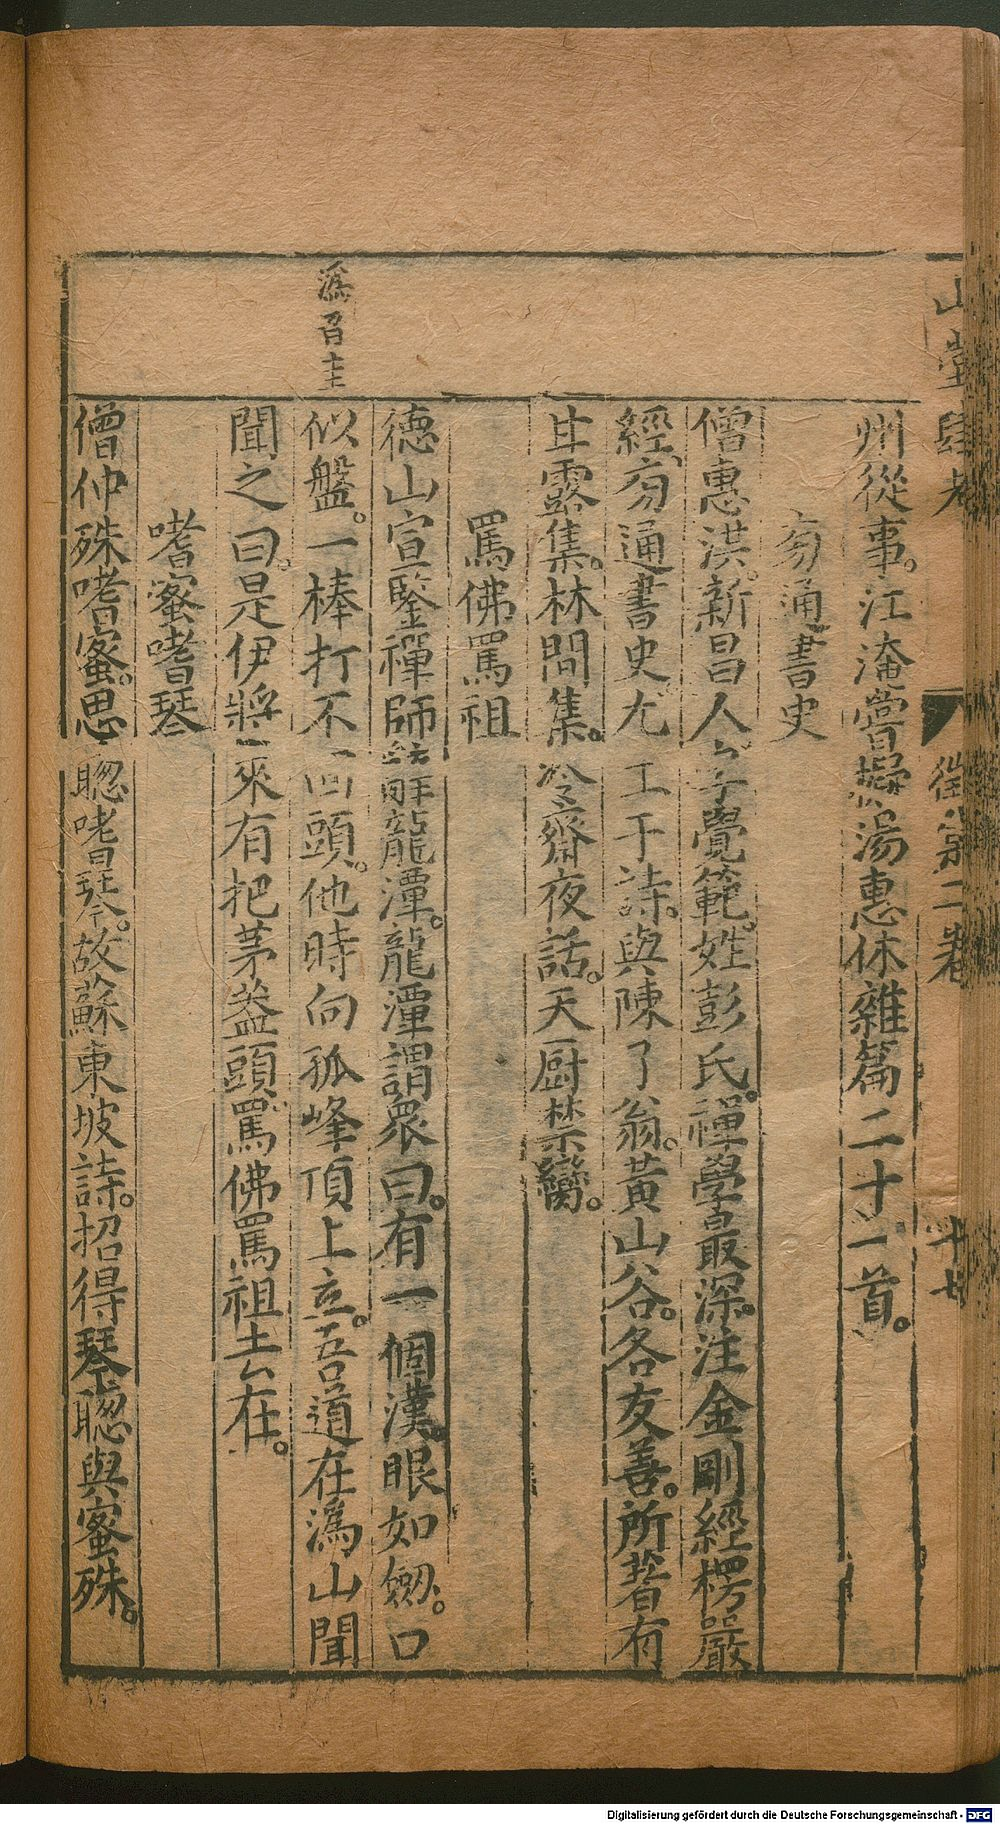 山堂肆考
徵集二卷
十七
州從事。江淹嘗擬湯惠休雜篇二十一首。
旁通書史
僧惠洪。新昌人。字覺範。姓彭氏。禪學最深。注金剛經楞嚴
經、旁通書史。尤工于詩。與陳了翁。黃山谷。各友善。所著有
甘露集。林間集。冷齋夜話。天厨禁臠。
罵佛罵祖
德山宣鑒禪師辭龍潭。龍潭謂眾曰。有一個漢。眼如劔。口
似盤。一棒打不回頭。他時向孤峰頂上立。吾道在溈山聞
聞之曰。是伊將來有把茅盖頭。罵佛罵祖去在。
溈召圭
嗜蜜嗜琴
僧仲殊嗜蜜。思聰嗜琴。故蘇東坡詩。招得琴聰與蜜殊。
Digitalisierung gefördert durch die Deutsche Forschungsgemeinschaft - DFG